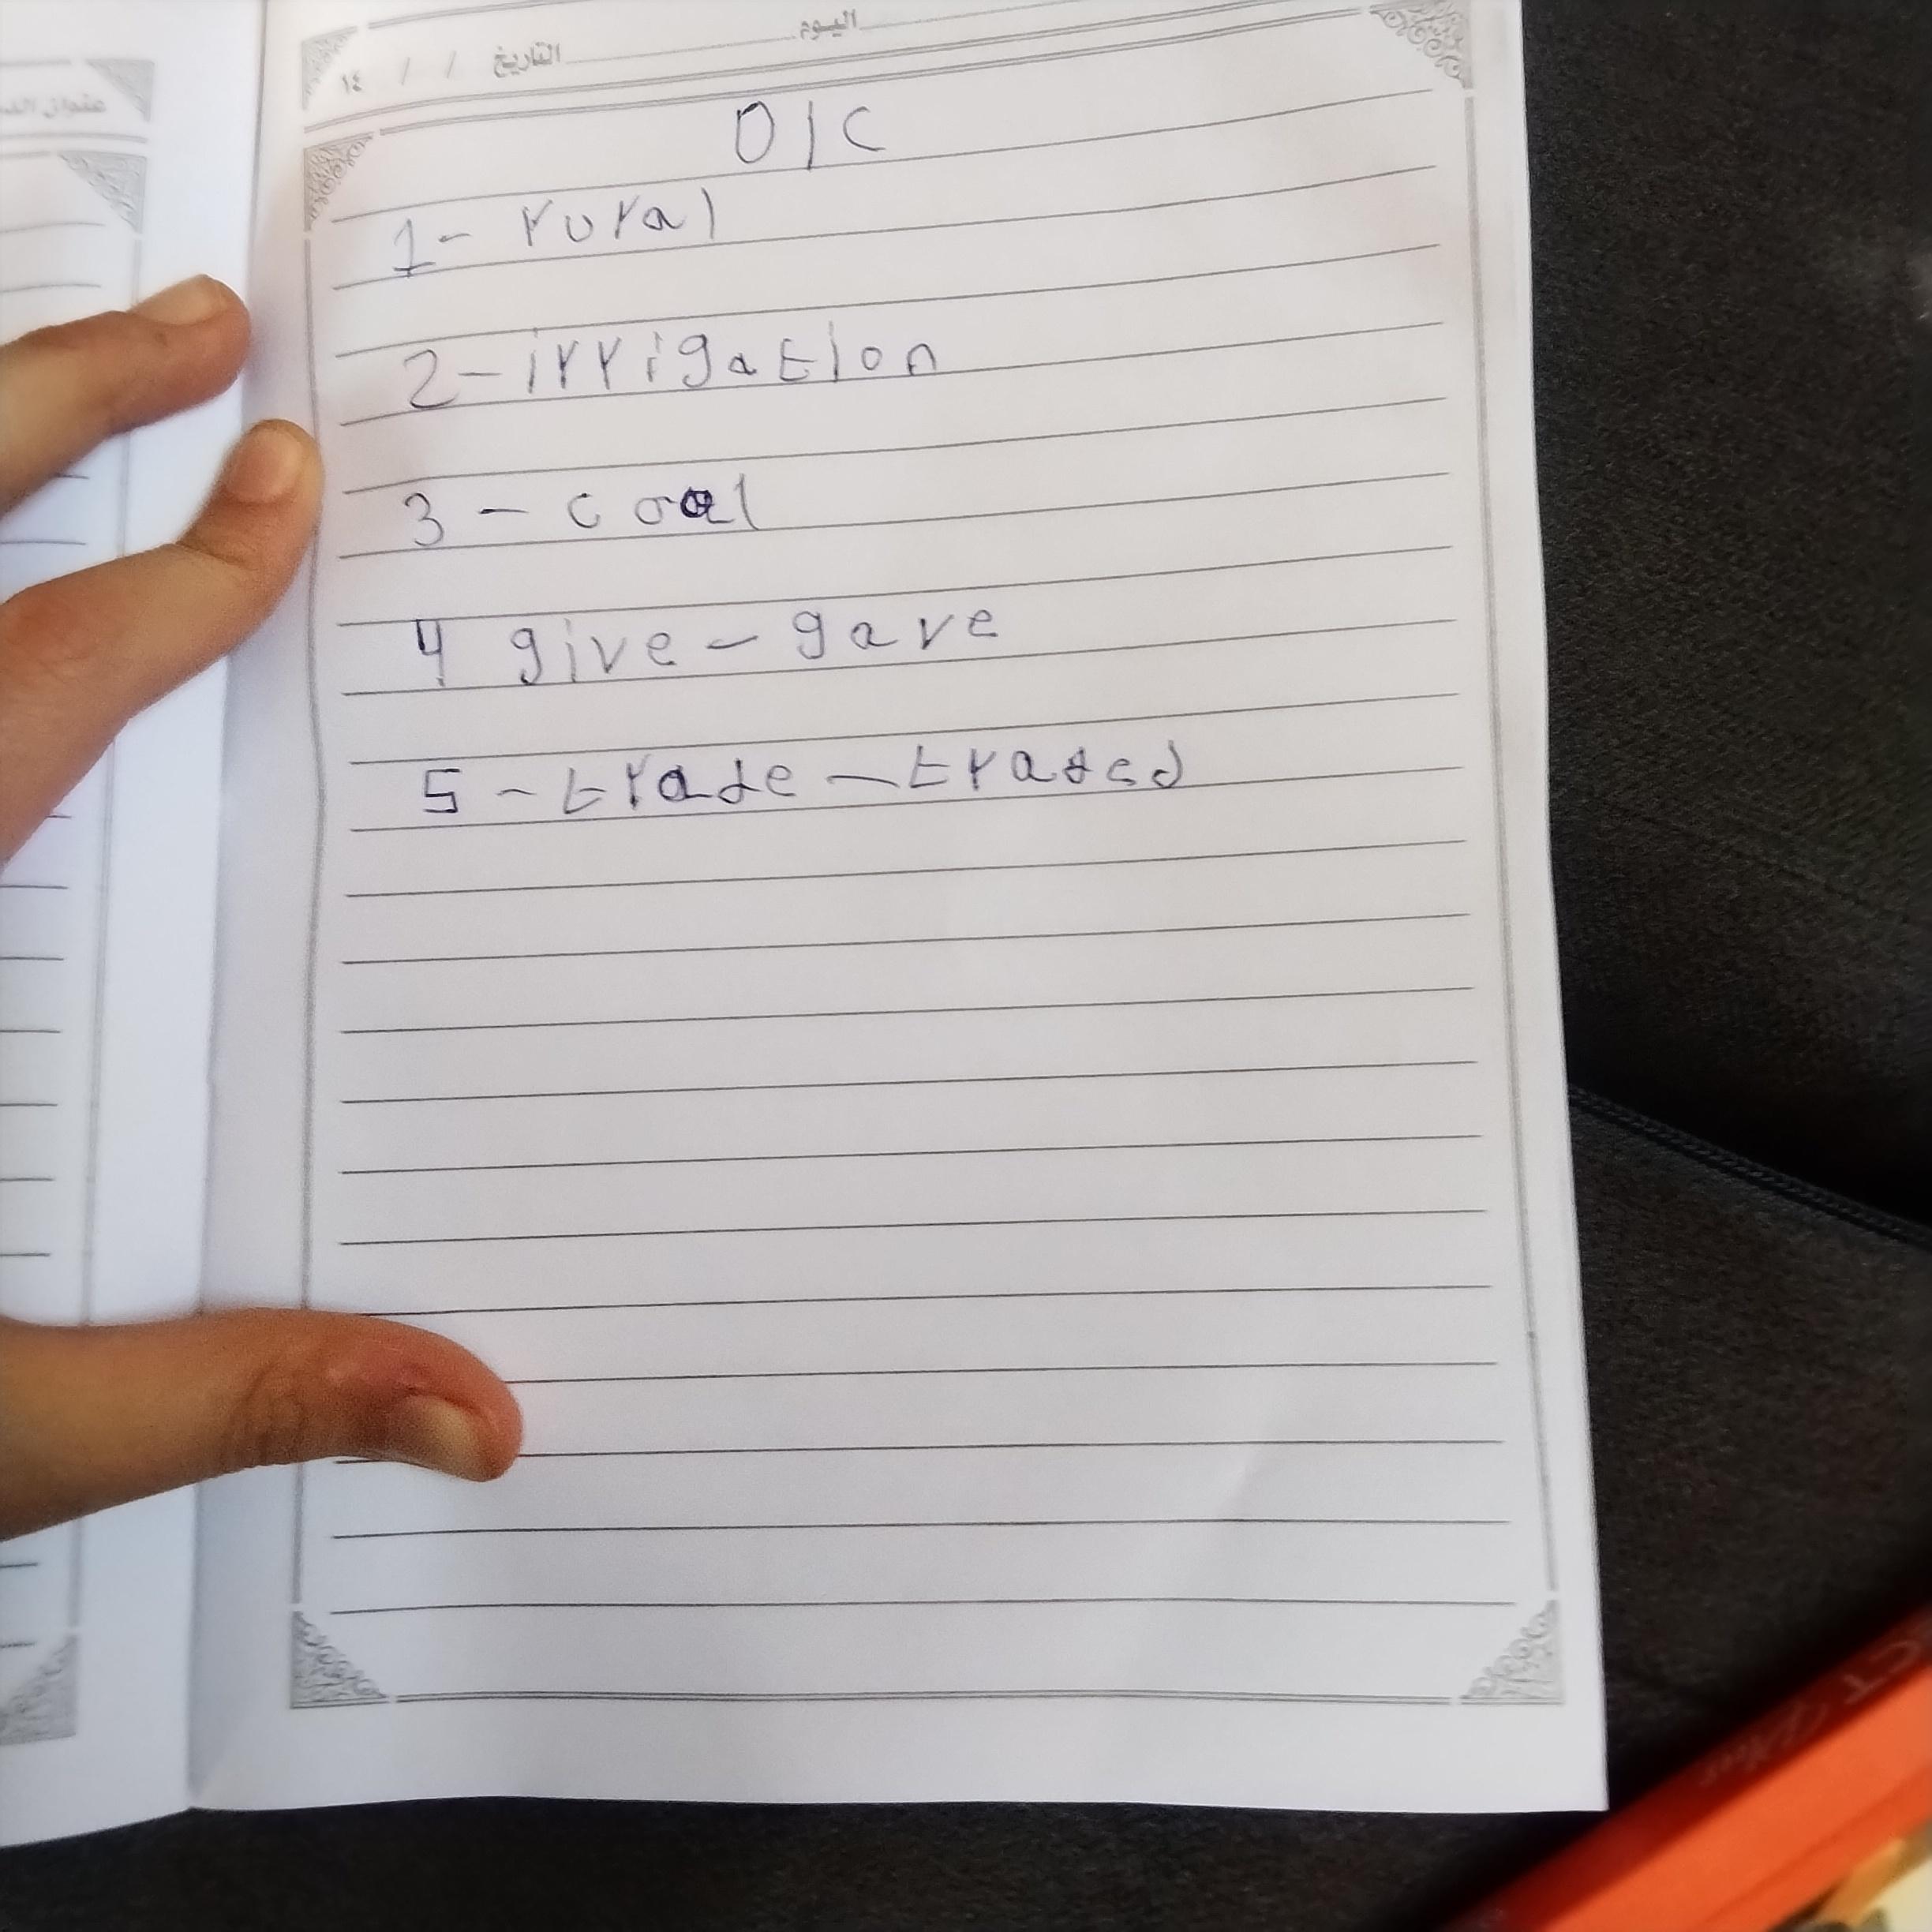 اليوم
التاريخ / / ١٤
عنوان
D/C
1- rural
2-irrigation
3 - coal
4 give - gave
5 - trade - traded
CT